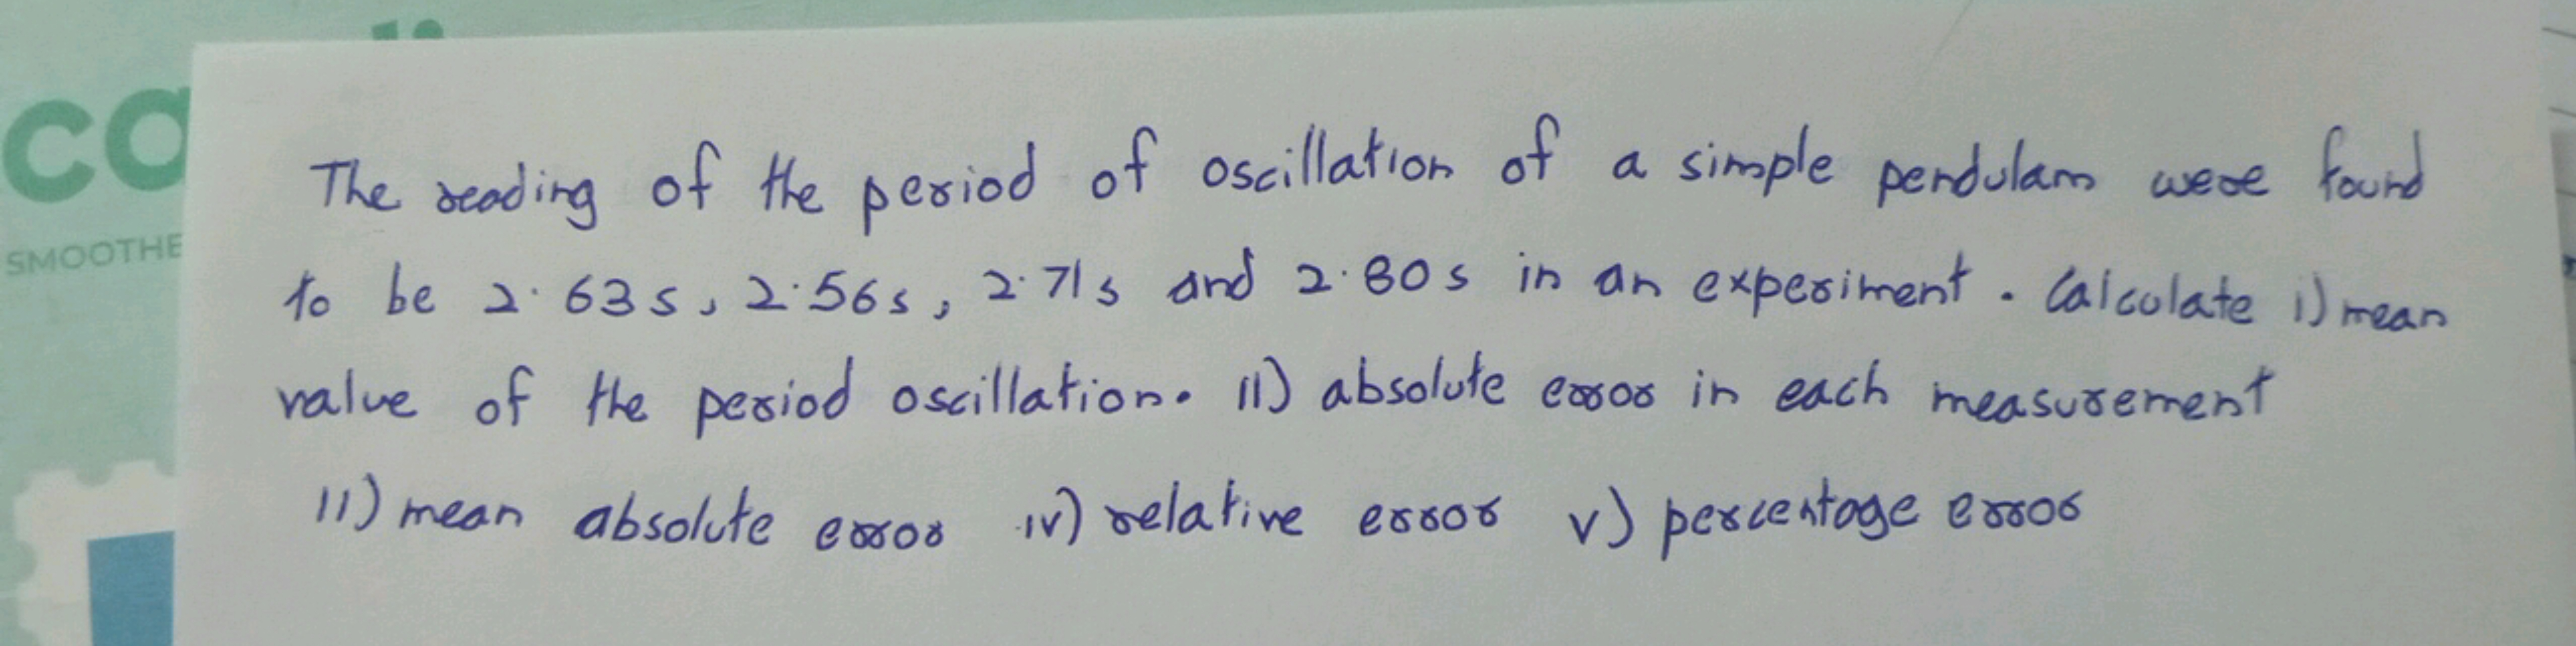 The reading of the period of oscillation of a simple pendulam were found
to be 2.63s, 2.56s, 2.71s and 2.80s in an experiment. Calculate i) mean
value of the period oscillation. II) absolute error in each measurement
II) mean absolute error iv) relative error v) percentage error
co
SMOOTHE